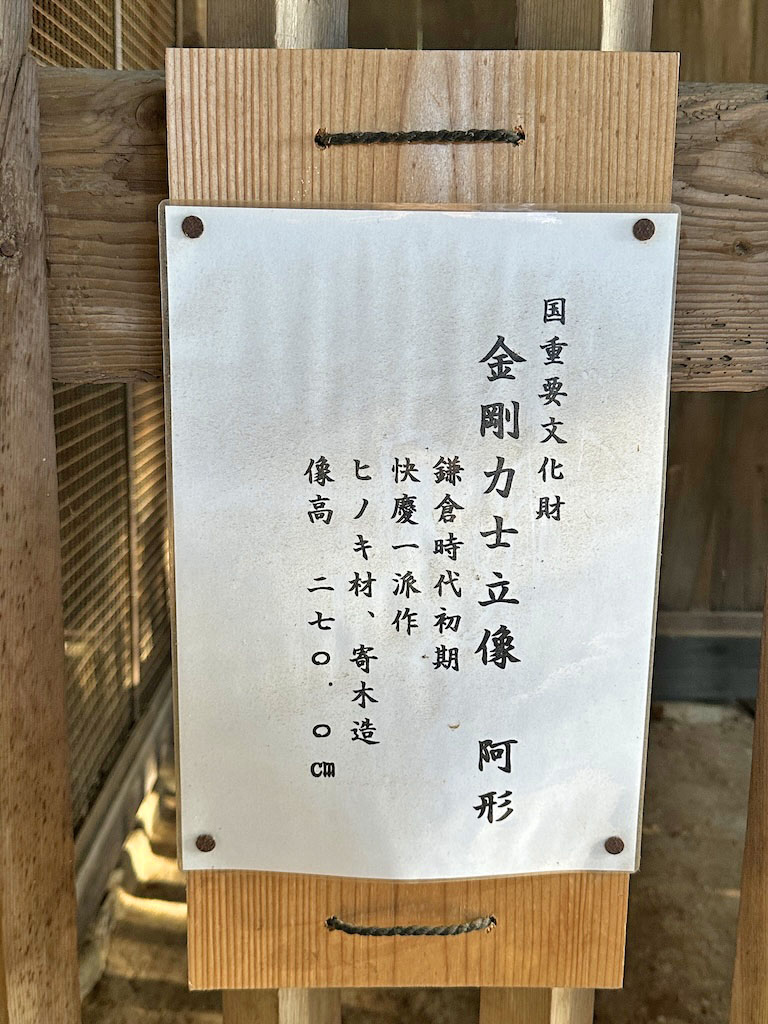 国重要文化財
金剛力士立像　阿形
鎌倉時代初期
快慶一派作
ヒノキ材、寄木造
像高　二七〇．〇㎝